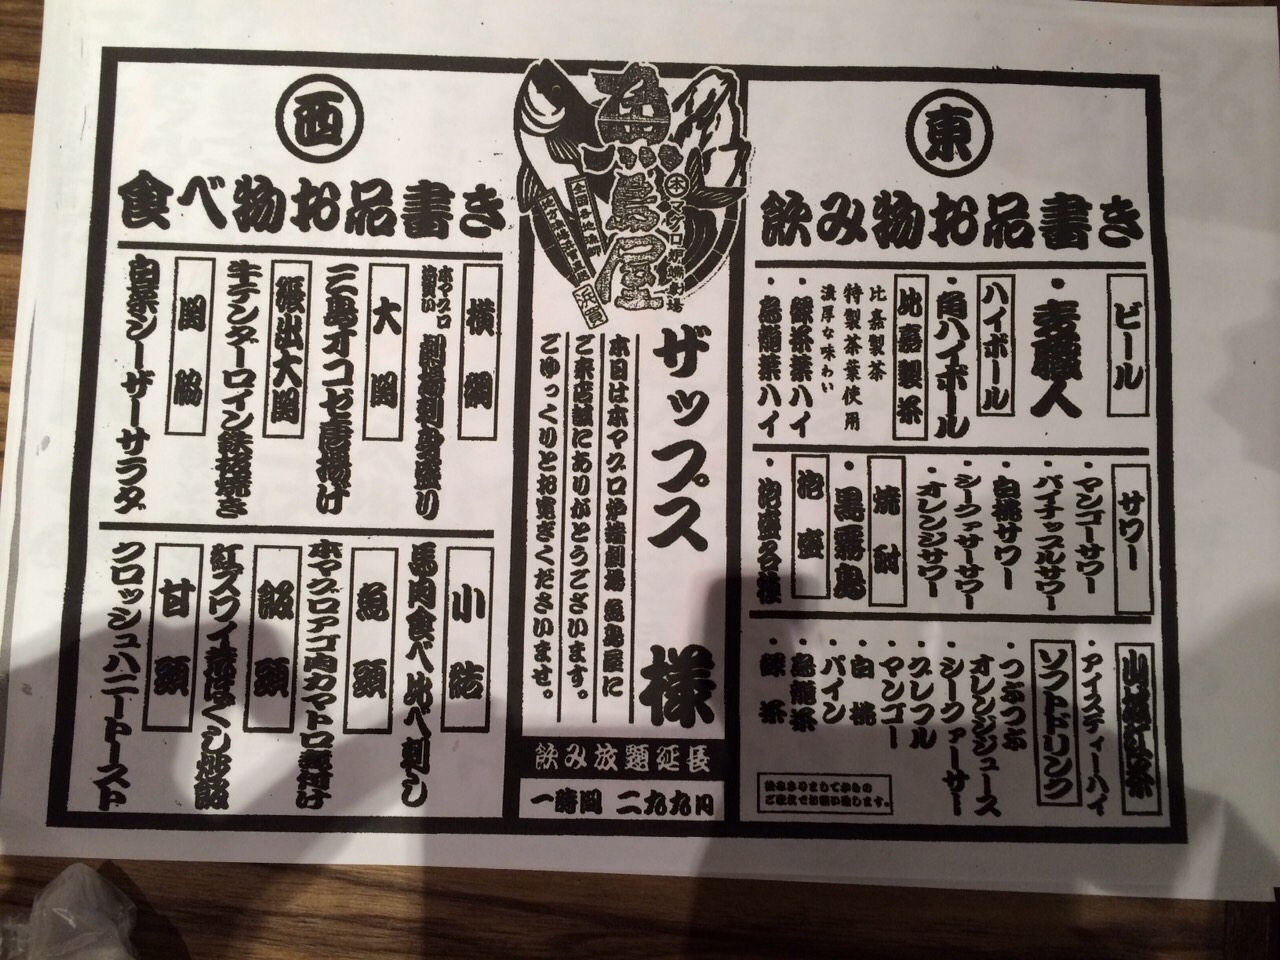 東
飲み物お品書き
ビール
・麦職人
ハイボール
・角ハイボール
比嘉製茶
比嘉製茶
特製茶葉使用
濃厚な味わい
・緑茶茶葉ハイ
・烏龍茶葉ハイ
サワー
・マンゴーサワー
・パイナップルサワー
・白桃サワー
・シークァーサーサワー
・オレンジサワー
焼酎
・黒霧島
泡盛
・泡盛各種
山城紅茶
・アイスティーハイ
ソフトドリンク
・つぶつぶ
オレンジジュース
・シークァーサー
・グレフル
・マンゴー
・白桃
・パイン
・烏龍茶
・緑茶
ご注文でお願い致します。
魚島屋
本マグロ炉端劇場
浜貫
ザップス 様
本日は本マグロ炉端劇場 魚島屋に
ご来店誠にありがとうございます。
ごゆっくりとお寛ぎくださいませ。
飲み放題延長
一時間 二九九円
西
食べ物お品書き
横綱
本マグロ
刺場刺身盛り
大関
オコゼ唐揚げ
張出大関
牛テンダーロイン鉄板焼き
関脇
白菜シーザーサラダ
小結
馬肉食べ比べ刺し
魚頭
本マグロアゴ肉カマトロ煮付け
飯頭
紅ズワイ蟹ほぐし炒飯
甘頭
クロッシュハニートースト